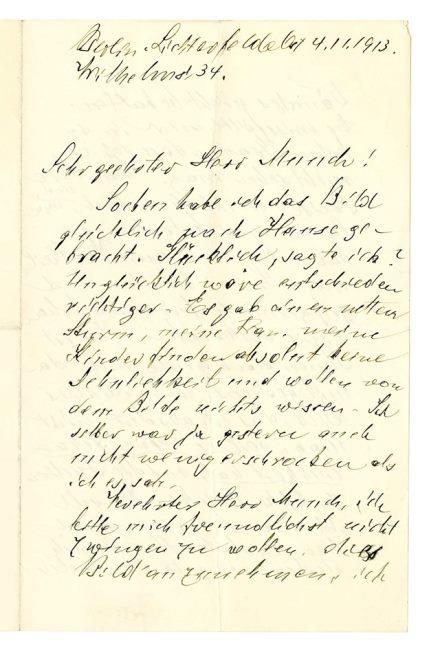 Berlin-Lichterfelde, 4.11.1913.
Wilhelmstr 34.
Sehr geehrter Herr Munch!
Soeben habe ich das Bild
glücklich nach Hause ge-
bracht. Glücklich, sagte ich?
Unglücklich wäre entschieden
richtiger - Es gab einen netten
Sturm, meine Frau, meine
Kinder finden absolut keine
Aehnlichkeit und wollen von
dem Bilde nichts wissen - Ich
selber war ja gestern auch
nicht weniger erschrocken als
ich es sah.
Verehrter Herr Munch, ich
bitte mich freundlichst nicht
zwingen zu wollen, dies
Bild anzunehmen, ich